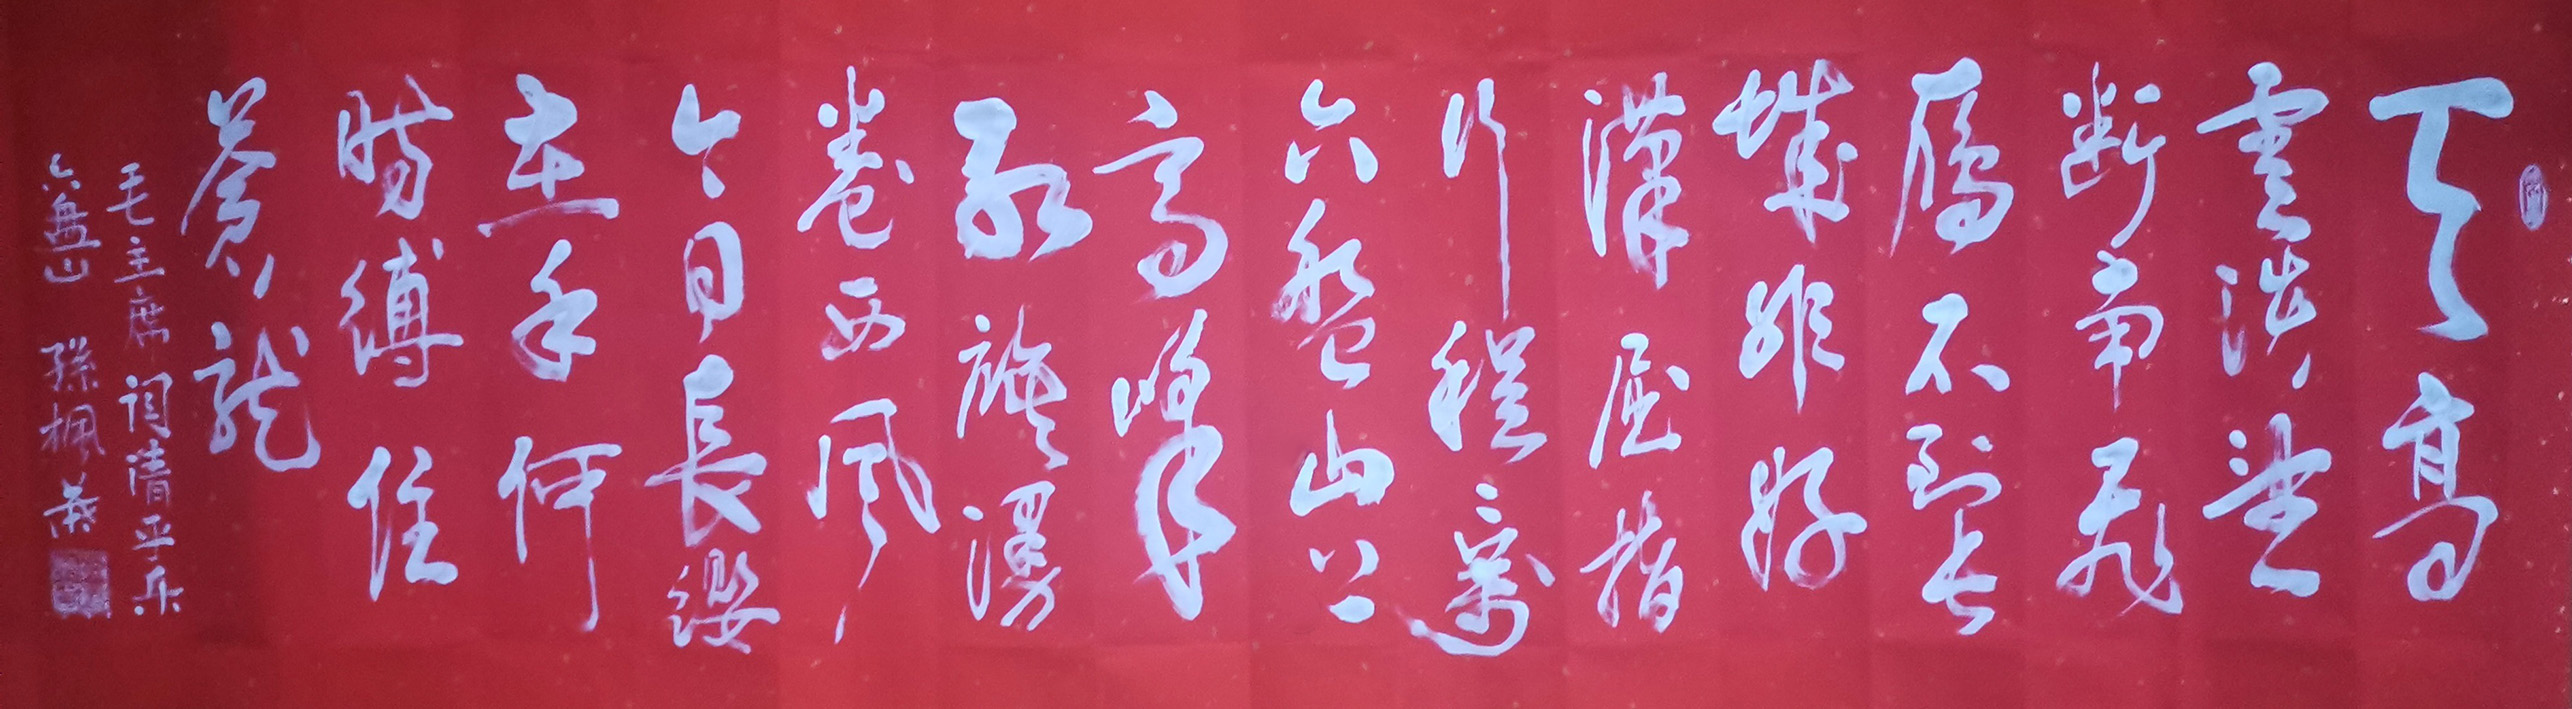 天高
雲淡望
断南飛
雁不到长
城非好
漢屈指
行程二萬
六盤山上
高峰
红旗漫
卷西風
今日長缨
在手何
時縛住
蒼龍
毛主席词清平乐
六盘山 孫